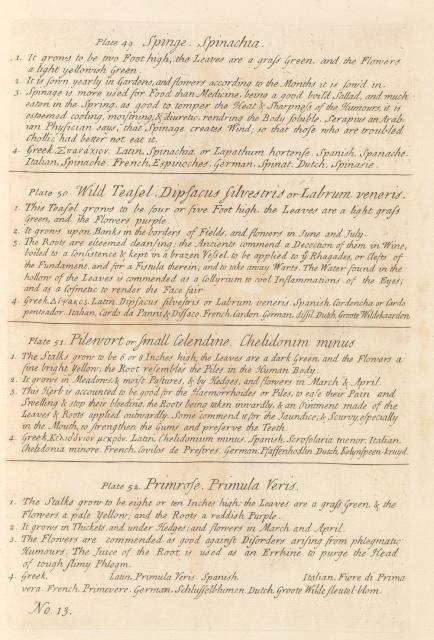 Plate 49. Spinge. Spinachia.
1. It grows to be two Foot high, the Leaves are a graſs Green, and the Flowers
a light yellowish Green.
2. It is ſown yearly in Gardens, and flowers according to the Months it is ſow'd in.
3. Spinage is more uſed for Food than Medicine, being a good boil'd Sallad, and much
eaten in the Spring, as good to temper the Heat & Sharpneſs of the Humours, it is
esteemed cooling, moiſtning, & diuretic, rendring the Body ſoluble. Serapius an Arab-
ian Phyſician says, that Spinage creates Wind; so that thoſe who are troubled
Chollic had better not eat it.
4. Greek, Σπανάχιον. Latin, Spinachia, or Lapathum hortense. Spanish, Spanache.
Italian, Spinache. French, Espinoches. German, Spinat. Dutch, Spinasie.
Plate 50. Wild Teaſel. Dipſacus ſilvestris or Labrum veneris.
1. This Teaſel grows to be four or five Foot high, the Leaves are a light graſs
Green, and the Flowers purple.
2. It grows upon Banks in the borders of Fields, and flowers in June and July.
3. The Roots are eſteemed cleanſing; the Ancients commend a Decoction of them in Wine,
boiled to a Conſistence & kept in a brazen Veſsel to be applied to ye Rhagades, or Clefts of
the Fundament, and for a Fistula therein; and to take away Warts. The Water found in the
hollow of the Leaves is commended as a Collyrium to cool Inflammations of the Eyes;
and as a Coſmetic to render the Face fair.
4. Greek, Δίψακος. Latin, Dipſacus ſilvestris or Labrum veneris. Spanish, Cardencha or Cardo
penteador. Italian, Cardo da Panni & Dyſſaco. French, Cardon. German, diſtil. Dutch, Groote Wildekaarden
Plate 51. Pilewort or ſmall Celendine. Chelidonium minus
1. The Stalks grow to be 6 or 8 Inches high; the Leaves are a dark Green and the Flowers a
fine bright Yellow; the Root reſembles the Piles in the Human Body.
2. It grows in Meadows, & moiſt Pastures, & by Hedges, and flowers in March & April.
3. This Herb is accounted to be good for the Haemorrhoides or Piles, to eaſe their Pain and
Swelling & stop their bleeding, the Roots being taken inwardly, & an Ointment made of the
Leaves & Roots applied outwardly. Some commend it for the Jaundice; & Scurvy, eſpecially
in the Mouth, to strengthen the Gums and preserve the Teeth.
4. Greek, Χελιδόνιον μικρόν. Latin, Chelidonium minus. Spanish, Scrofolaria menor. Italian,
Chelidonia minore. French, Coulus de Prestres. German, Pfaffenhodlin. Dutch,
Plate 52. Primroſe. Primula Veris.
1. The Stalks grow to be eight or ten Inches high; the Leaves are a graſs Green, & the
Flowers a pale Yellow; and the Roots a reddish Purple.
2. It grows in Thickets, and under Hedges; and flowers in March and April.
3. The Flowers are commended as good againſt Diſorders ariſing from phlegmatic
Humours. The Juice of the Root is used as an Errhine to purge the Head
of tough ſlimy Phlegm.
4. Greek. Latin, Primula Veris. Spanish. Italian, Fiore di Prima
vera. French, Primevere. German, Schluſſelblumen. Dutch, Groote Wilde ſleutel-blom.
No. 13.